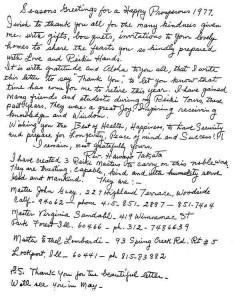 Seasons Greetings for a Happy Prosperous 1977.
I wish to thank you all for the many kindness given
me. with gifts, bouquets, invitations to your lovely
homes to share the feasts you so kindly prepared
with Love and Reiki Hands.
It is with gratitude and Aloha to you all, that I write
this letter to say "Thank You," to let you know that
time has come for me to retire this year. I have gained
many friends and students during my Reiki Tours, these
past years. They was a great joy
and Wisdom.
Wishing you the Best of Health, Happiness, to have Security
and prepare for Longevity, Peace of mind and Success!
I remain, most gratefully yours,
Rev. Hawayo Takata
I have created 3 Reiki Masters to carry on this noble work,
They are trusting, capable, kind and with humility above
all. They are:-
Master John Gray, 227 Highland Terrace, Woodside
Calif- 94062 - phone 415-851-2897 - 851-7404
Master Virginia Samdahl, 419 Winnemac St
Park Forest Ill. 60466 - ph. 312-7486639
Master Ethel Lombardi - 93 Spring Creek Rd. Rt #5
Lockport, Ill - 60441 - ph 815-
P.S. Thank you for the beautiful letter.
Will see you in May -